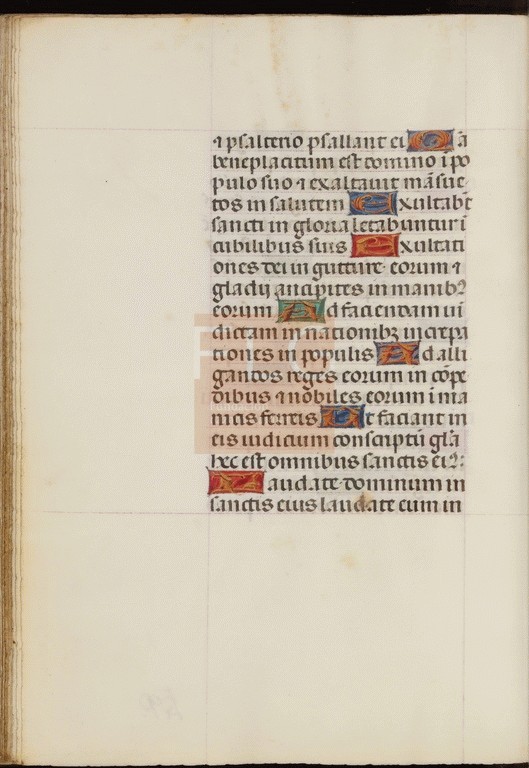 ⁊ psalterio psallant ei Q ã
beneplacitum est domino ĩ po
pulo suo ⁊ exaltauit mãsue
tos in salutem Exultabt̃
sancti in gloria letabuntur ĩ
cubilibus suis Exultati
ones dei in gutture eorum ⁊
gladij ancipites in manibꝰ
eorum Ad faciendam ui
dictam in nationibꝫ increpa
tiones in populis Ad alli
gandos reges eorum in cõpe
dibus ⁊ nobiles eorum ĩ ma
nicis ferreis Ut faciant in
eis iudicium conscriptũ gl̃a
hec est omnibus sanctis eiꝰ:
Laudate dominum in
sanctis eius laudate eum in